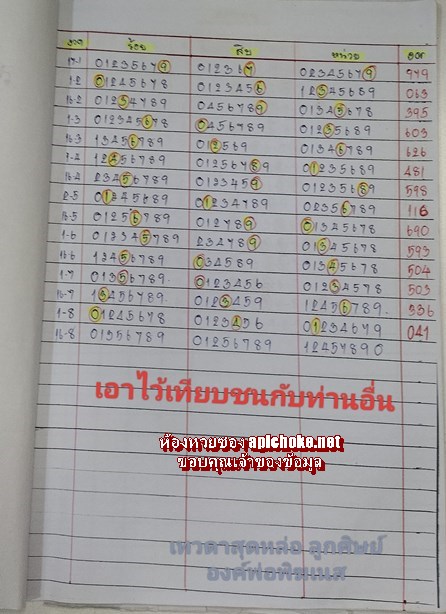 งวด ร้อย สิบ หน่วย ออก
17-1 01235679 012367 02345679 979
1-2 01245678 0123456 12345678 063
16-2 01234789 0456789 01345678 395
1-3 01234578 0456789 01235689 603
16-3 13456789 012569 01346789 626
1-4 12456789 01256789 01235689 481
16-4 23456789 0123459 01235689 598
2-5 01245789 01234789 02356789 116
16-5 01256789 012789 01345678 690
1-6 01334589 234789 01345678 593
16-6 12456789 034589 01345678 504
1-7 01356789. 0123456 01234578 503
16-7 13456789. 0123459 12456789. 336
1-8 01245678 0123456 01234679 041
16-8 01356789 01256789 12457890
เอาไว้เทียบชนกับท่านอื่น
ห้องหวยซอง apichoke.net
ขอบคุณเจ้าของข้อมูล
เทวดาสุดหล่อ ลูกศิษย์
องค์พ่อพิฆเนส